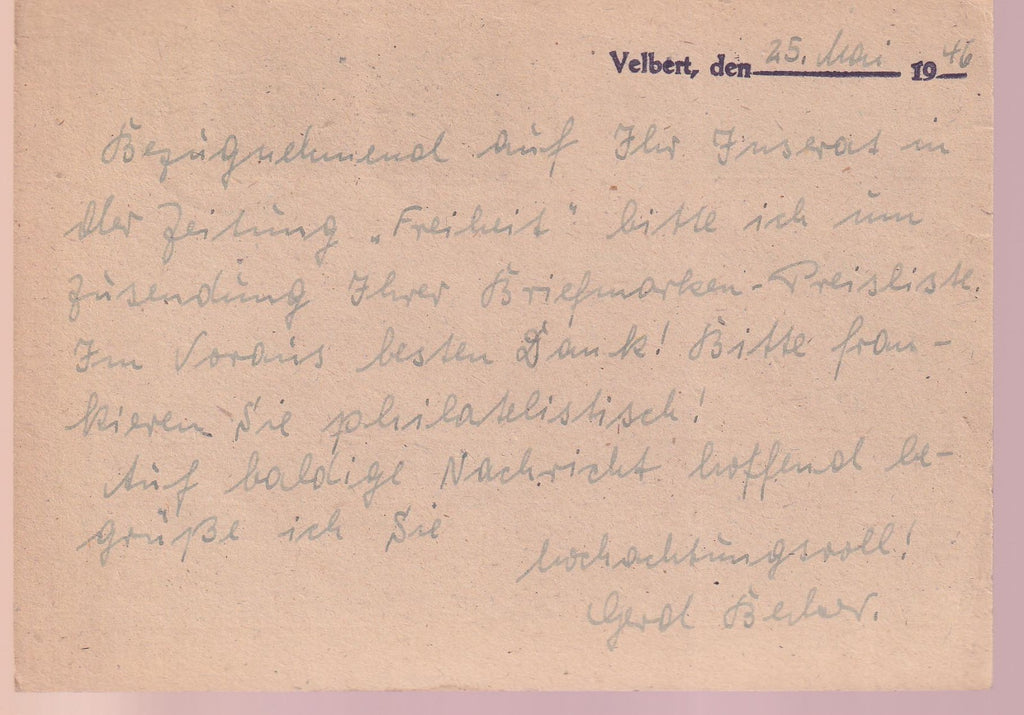 Velbert, den 25. Mai 1946
Bezugnehmend auf Ihr Inserat in
der Zeitung „Freiheit“ bitte ich um
Zusendung Ihrer Briefmarken-Preisliste.
Im Voraus besten Dank! Bitte fran-
kieren Sie philatelistisch!
Auf baldige Nachricht hoffend be-
grüße ich Sie
hochachtungsvoll!
Gerd Becker.